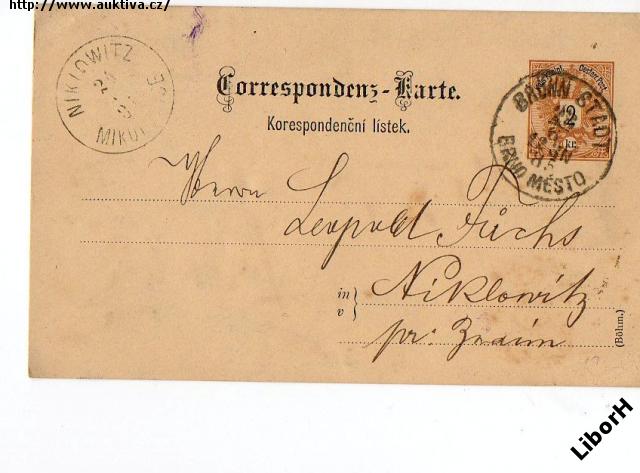 http://www.auktiva.cz/
NIKLOWITZ
MIKUL
Correspondenz-Karte.
Korespondenční lístek.
2
kr.
BRÜNN STADT
BRNO MĚSTO
Herrn
Leopold Fuchs
in
v
Niklowitz
pr: Znaim
(Böhm.)
LiborH